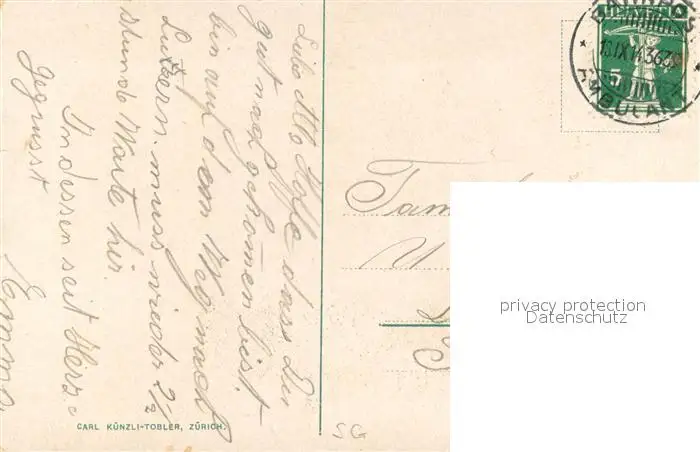 Liebe Alte Hoffe dass Du
gut nach gekomen bist.
bin auf dem Weg nach
Luzern. muss wieder 2 1/2
stunde Warte hir.
In dessen seit Herz-
Gegrüsst
Emma.
CARL KÜNZLI-TOBLER, ZÜRICH.
BAHNPOST
AMBULANT
5
Fam
privacy protection
Datenschutz